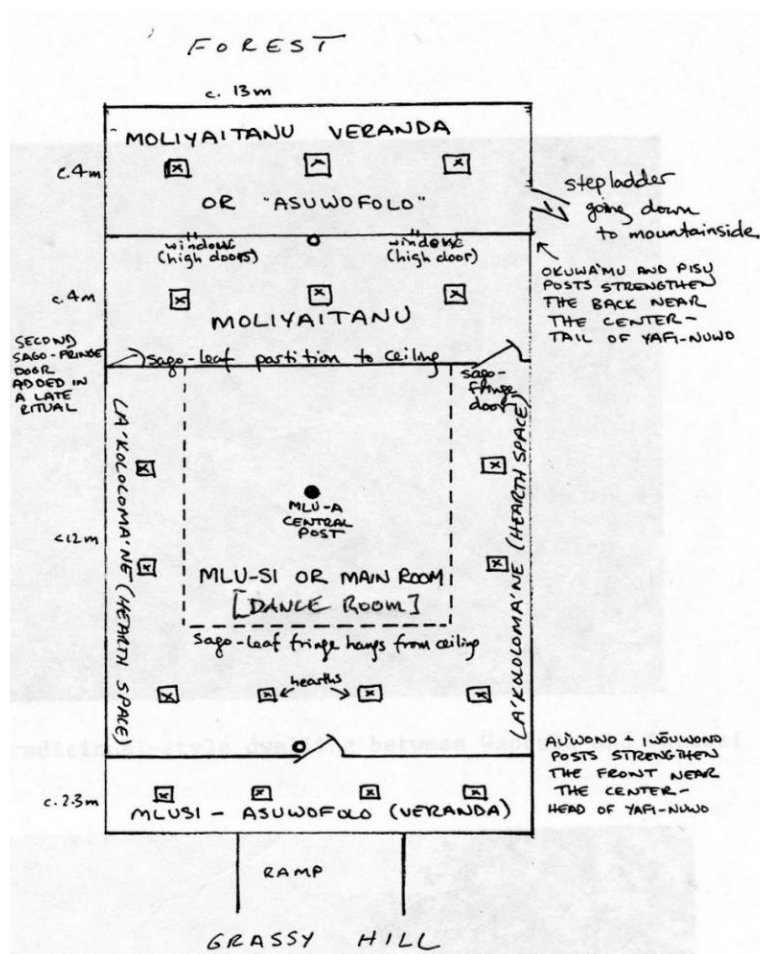 FOREST
c. 13m
MOLIYAITANU VERANDA
c. 4m
OR "ASUWOFOLO"
stepladder
going down
to mountainside
window
(high doors)
window
(high door)
OKUWA'MU AND PISU
POSTS STRENGTHEN
THE BACK NEAR
THE CENTER -
TAIL OF YAFI-NUWO
c. 4m
MOLIYAITANU
SECOND
SAGO-FRINGE
DOOR
ADDED IN
A LATE
RITUAL
sago-leaf partition to ceiling
sago-
fringe
door
LA'KOLOLOMA'NE (HEARTH SPACE)
LA'KOLOLOMA'NE (HEARTH SPACE)
MLU-A
CENTRAL
POST
c12m
MLU-SI OR MAIN ROOM
[DANCE ROOM]
Sago-leaf fringe hangs from ceiling
hearths
between
c. 2-3m
MLUSI - ASUWOFOLO (VERANDA)
POSTS STRENGTHEN
THE FRONT NEAR
THE CENTER -
HEAD OF YAFI-NUWO
RAMP
GRASSY HILL